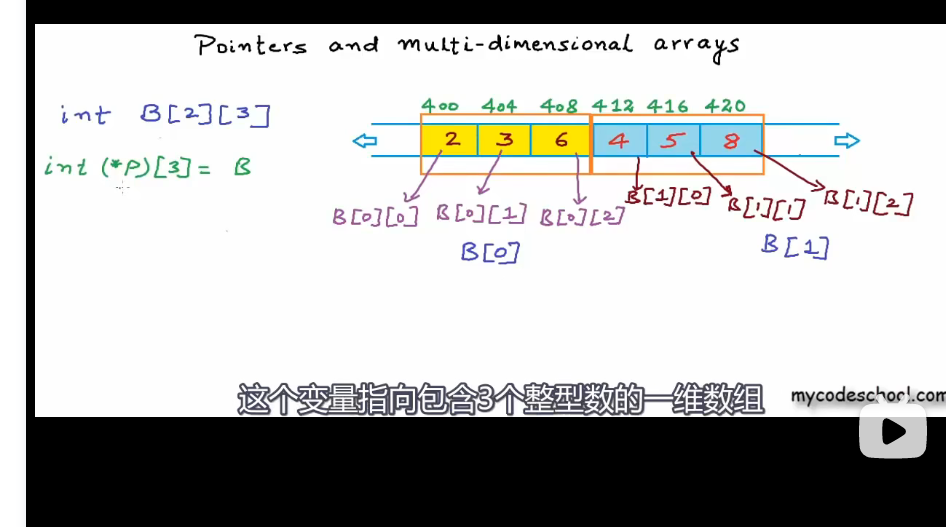 Pointers and multi-dimensional arrays
int B[2][3]
400 404 408 412 416 420
2 3 6 4 5 8
int (*P)[3] = B
B[0][0] B[0][1] B[0][2] B[1][0] B[1][1] B[1][2]
B[0] B[1]
这个变量指向包含3个整型数的一维数组
mycodeschool.com